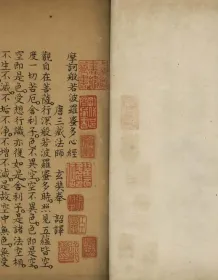 摩訶般若波羅蜜多心經
唐三藏法師 玄奘奉 詔譯
觀自在菩薩行深般若波羅蜜多時照見五蘊皆空
度一切苦厄舍利子色不異空空不異色色即是空
空即是色受想行識亦復如是舍利子是諸法空相
不生不滅不垢不淨不增不減是故空中無色無受